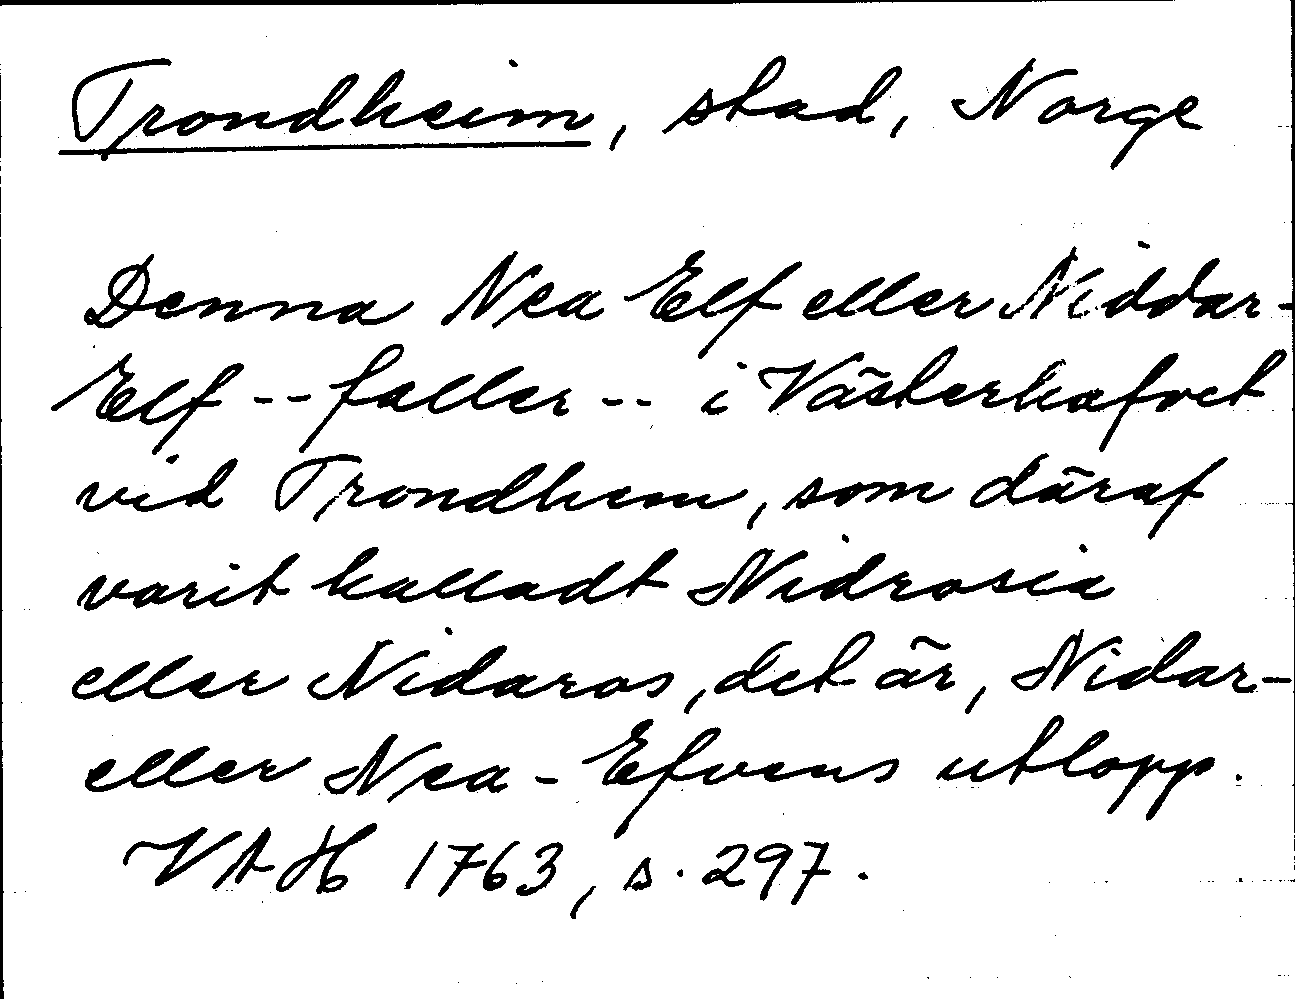 Trondheim, stad, Norge
Denna Nea Elf eller Niddar-
Elf -- faller -- i Västerhafvet
vid Trondhem, som däraf
varit kalladt Nidrosia
eller Nidaros, det är, Nidar-
eller Nea-Efvens utlopp.
VAH 1763, s. 297.